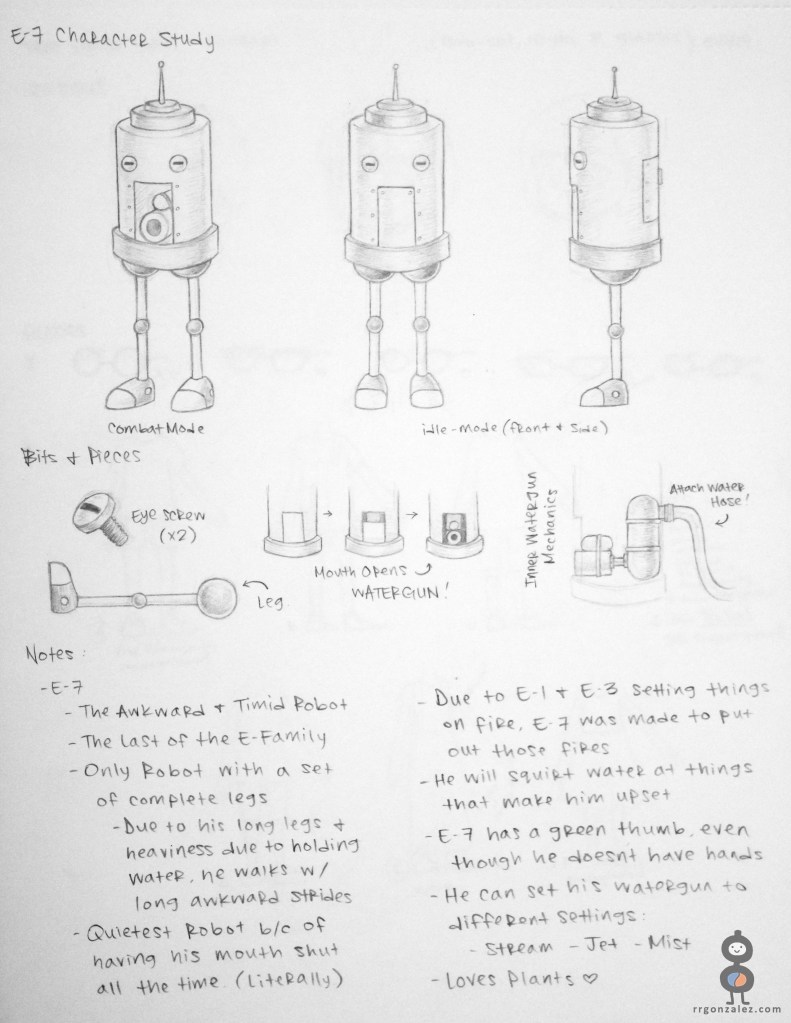 E-7 Character Study
Combat Mode
idle-mode (front & side)
Bits & Pieces
Eye screw
(x2)
Leg
Mouth opens
WATERGUN!
Inner Watergun
Mechanics
Attach Water
Hose!
Notes:
- E-7
- The Awkward & Timid Robot
- The Last of the E-Family
- Only Robot with a set
of complete legs
- Due to his long legs &
heaviness due to holding
water, he walks w/
long awkward strides
- Quietest Robot b/c of
having his mouth shut
all the time. (Literally)
- Due to E-1 & E-3 setting things
on fire, E-7 was made to put
out those fires
- He will squirt water at things
that make him upset
- E-7 has a green thumb, even
though he doesnt have hands
- He can set his watergun to
different settings:
- Stream - Jet - Mist
- Loves Plants ♡
rrgonzalez.com